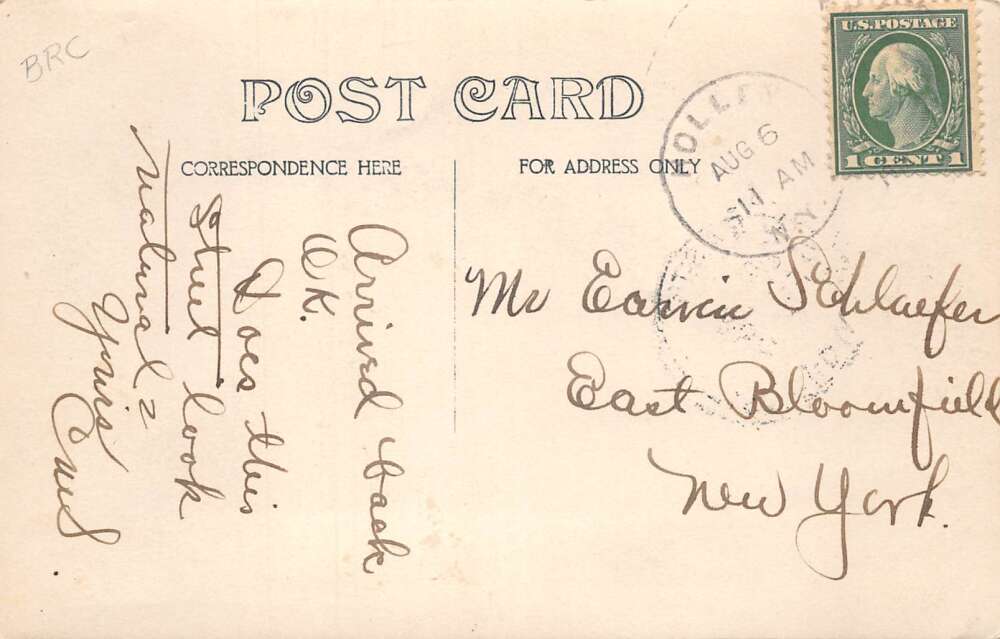 BRC
POST CARD
CORRESPONDENCE HERE
FOR ADDRESS ONLY
U.S. POSTAGE
1 CENT 1
AUG 6
AM
N.Y.
Arrived back
O.K.
Does this
look
natural?
Yours
Mr Earvin Schlaefer
East Bloomfield
New York.